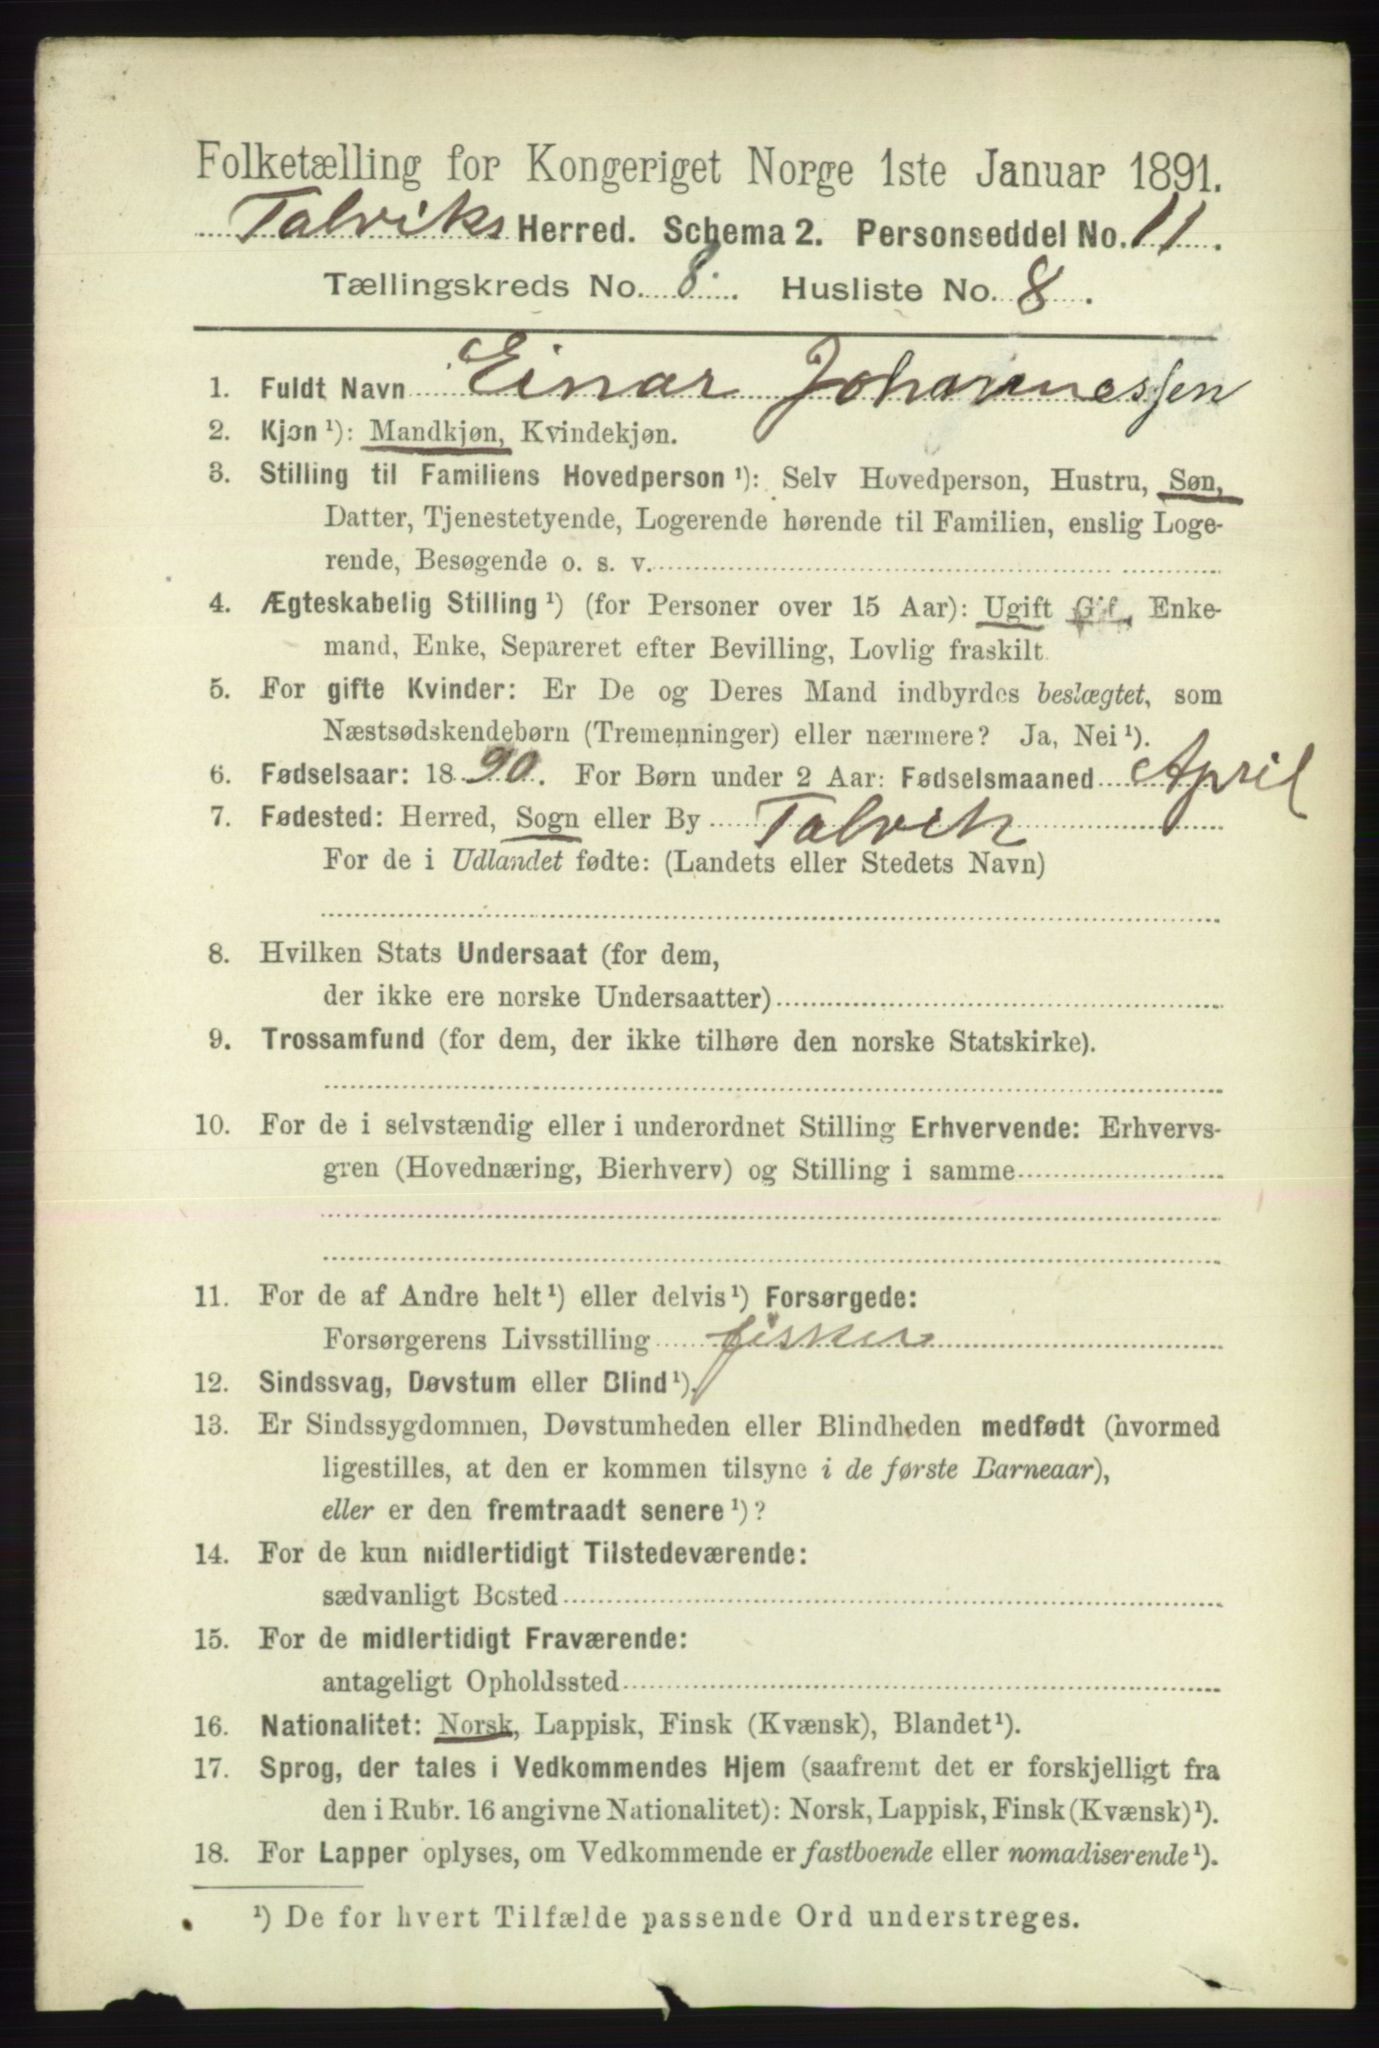 Folketælling for Kongeriget Norge 1ste Januar 1891.
Talviks Herred. Schema 2. Personseddel No. 11.
Tællingskreds No. 8. Husliste No. 8.
1. Fuldt Navn Einar Johannessen
2. Kjøn ¹): Mandkjøn, Kvindekjøn.
3. Stilling til Familiens Hovedperson ¹): Selv Hovedperson, Hustru, Søn,
Datter, Tjenestetyende, Logerende hørende til Familien, enslig Loge-
rende, Besøgende o. s. v.
4. Ægteskabelig Stilling ¹) (for Personer over 15 Aar): Ugift Gift, Enke-
mand, Enke, Separeret efter Bevilling, Lovlig fraskilt
5. For gifte Kvinder: Er De og Deres Mand indbyrdes beslægtet, som
Næstsødskendebørn (Tremenninger) eller nærmere? Ja, Nei ¹).
6. Fødselsaar: 1890. For Børn under 2 Aar: Fødselsmaaned April
7. Fødested: Herred, Sogn eller By Talvik
For de i Udlandet fødte: (Landets eller Stedets Navn)
8. Hvilken Stats Undersaat (for dem,
der ikke ere norske Undersaatter)
9. Trossamfund (for dem, der ikke tilhøre den norske Statskirke).
10. For de i selvstændig eller i underordnet Stilling Erhvervende: Erhvervs-
gren (Hovednæring, Bierhverv) og Stilling i samme
11. For de af Andre helt ¹) eller delvis ¹) Forsørgede:
Forsørgerens Livsstilling fisker
12. Sindssvag, Døvstum eller Blind ¹).
13. Er Sindssygdommen, Døvstumheden eller Blindheden medfødt (hvormed
ligestilles, at den er kommen tilsyne i de første Barneaar),
eller er den fremtraadt senere ¹)?
14. For de kun midlertidigt Tilstedeværende:
sædvanligt Bosted
15. For de midlertidigt Fraværende:
antageligt Opholdssted
16. Nationalitet: Norsk, Lappisk, Finsk (Kvænsk), Blandet ¹).
17. Sprog, der tales i Vedkommendes Hjem (saafremt det er forskjelligt fra
den i Rubr. 16 angivne Nationalitet): Norsk, Lappisk, Finsk (Kvænsk) ¹).
18. For Lapper oplyses, om Vedkommende er fastboende eller nomadiserende ¹).
¹) De for hvert Tilfælde passende Ord understreges.